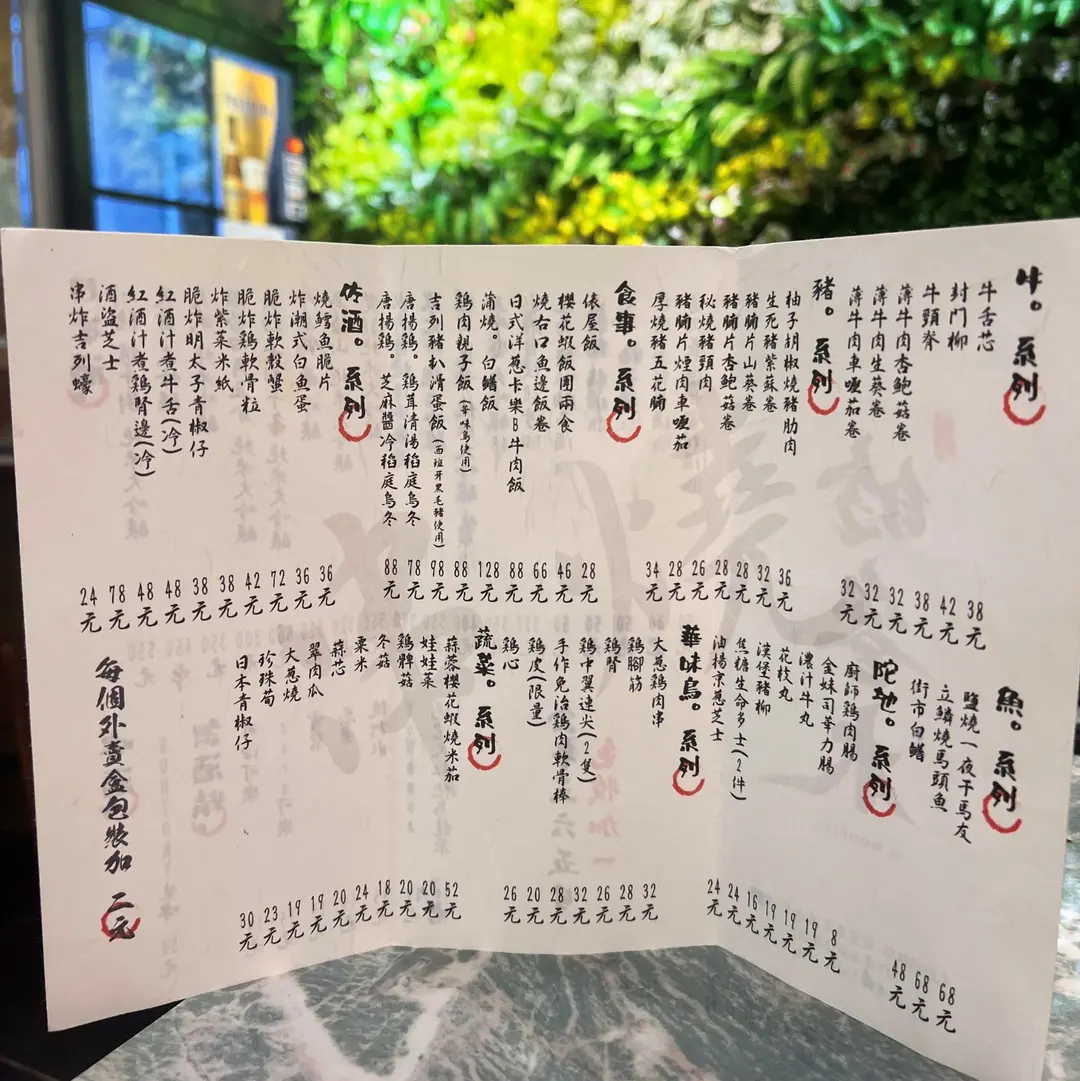 牛。系列
牛舌芯 38元
封門柳 42元
牛頸脊 38元
薄牛肉杏鮑菇卷 32元
薄牛肉生葵卷 32元
薄牛肉車喱茄卷 32元
豬。系列
柚子胡椒燒豬肋肉 36元
生死豬紫蘇卷 32元
豬腩片山葵卷 28元
豬腩片杏鮑菇卷 28元
秘燒豬頸肉 26元
豬腩片煙肉車喱茄 28元
厚燒豬五花腩 34元
食事。系列
俵屋飯 28元
櫻花蝦飯團兩食 46元
燒右口魚邊飯卷 66元
日式洋葱卡樂B牛肉飯 88元
蒲燒。白鱔飯 128元
鶏肉親子飯(華味鳥使用) 88元
吉列豬扒滑蛋飯(西班牙黑毛豬使用) 98元
唐揚鶏。鶏茸清湯稻庭烏冬 78元
唐揚鶏。芝麻醬冷稻庭烏冬 88元
佐酒。系列
燒鱈魚脆片 36元
炸潮式白魚蛋 36元
脆炸軟殼蟹 72元
脆炸鶏軟骨粒 42元
炸紫菜米紙 38元
脆炸明太子青椒仔 38元
紅酒汁煮牛舌(冷) 48元
紅酒汁煮鶏腎邊(冷) 48元
酒盜芝士 78元
串炸吉列蠔 24元
魚。系列
鹽燒一夜干馬友 68元
立鱗燒馬頭魚 68元
街市白鱔 48元
陀地。系列
廚師鶏肉腸 8元
金妹司華力腸 19元
濃汁牛丸 19元
花枝丸 19元
漢堡豬柳 16元
焦糖生命多士(2件) 24元
油揚京葱芝士 24元
華味鳥。系列
大葱鶏肉串 32元
鶏腳筋 28元
鶏腎 26元
鶏中翼連尖(2隻) 32元
手作免治鶏肉軟骨棒 28元
鶏皮(限量) 20元
鶏心 26元
蔬菜。系列
蒜蓉櫻花蝦燒米茄 52元
娃娃菜 20元
鶏髀菇 20元
冬菇 18元
粟米 24元
蒜芯 20元
翠肉瓜 19元
大葱燒 19元
珍珠筍 23元
日本青椒仔 30元
每個外賣盒包裝加 二元